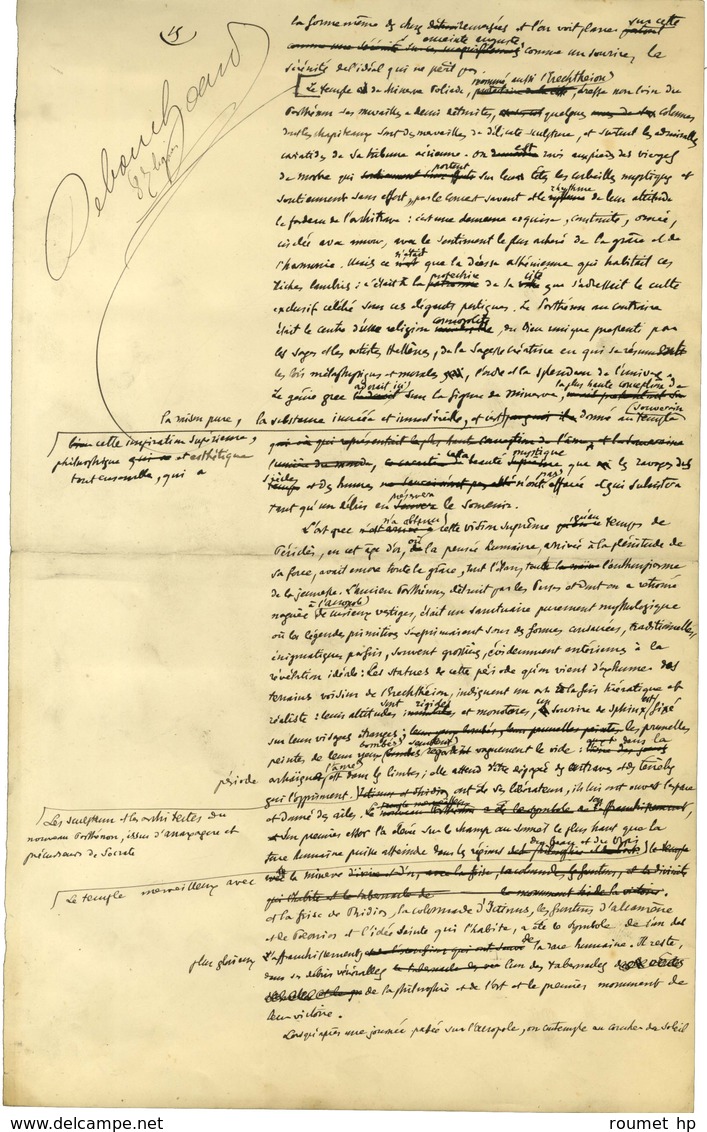 15
Debouchaud
87 lignes
la forme même des choses et l'on voit planer sur cette
enceinte auguste comme un sourire, la
sérénité de l'idéal qui ne périt pas.
Le temple de Minerve Poliade, nommé aussi Erechtheion, se dresse non loin du
Parthénon ses murailles à demi détruites, quelques colonnes
dont les chapiteaux sont des merveilles de délicate sculpture, et surtout les admirables
cariatides de sa tribune aérienne. On voit aux pieds des vierges
de marbre qui portent sur leurs têtes les corbeilles mystiques et
soutiennent sans effort, par le consent savant et le rythme de leur attitude
le fardeau de l'architrave : c'est une demeure exquise, construite, ornée,
ciselée avec amour, avec le sentiment le plus achevé de la grâce et de
l'harmonie. Mais ce n'était que la déesse athénienne qui habitait ces
riches lambris : c'était à la protectrice de la cité que s'adressait le culte
exclusif célébré sous ces élégants portiques. Le Parthénon au contraire
était le centre d'une religion cosmopolite, du Dieu unique pressenti par
les sages et les artistes Hellènes, de la Sagesse créatrice en qui se résument
les lois métaphysiques et morales, l'ordre et la splendeur de l'univers.
Le génie grec adorait ici sous la figure de Minerve, la plus haute conception de
la raison pure, la substance incréée et immatérielle, et c'est donné au temple souverain
cette inspiration supérieure,
philosophique et esthétique
tout ensemble, qui a
cette beauté mystique que ni les ravages des
siècles et des hommes n'ont pas effacée et qui subsistera
tant qu'un débris en préservera le souvenir.
L'art grec n'a obtenu cette vision suprême qu'au temps de
Périclès, en cet âge d'or, où la pensée humaine, arrivée à la plénitude de
sa force, avait encore toute la grâce, tout l'élan, l'enthousiasme
de la jeunesse. L'ancien Parthénon détruit par les Perses et dont on a retrouvé
naguère à l'acropole de curieux vestiges, était un sanctuaire purement mythologique
où la légende primitive s'exprimaient sous des formes consacrées, traditionnelles,
énigmatiques parfois, souvent grossières, évidemment antérieures à la
révélation idéale : Les statues de cette période qu'on vient d'exhumer des
terrains voisins de l'Erechtheion, indiquent un art à la fois hiératique et
réaliste : leurs attitudes sont rigides et monotones, un sourire de sphinx est fixé
sur leurs visages étranges ; les prunelles
peintes de leurs yeux bombés semblent regarder vaguement le vide : l'art dans la
période archaïque est dans les limbes ; l'âme attend d'être dégagée des entraves et des ténèbres
qui l'oppriment. Ictinus et Phidias ont été ses libérateurs, ils lui ont ouvert l'espace
et donné des ailes.
Les sculpteurs et les architectes du
nouveau Parthénon, issus d'Anaxagore et
précurseurs de Socrate
Son premier essor l'a élevée sur le champ au sommet le plus haut que la
race humaine puisse atteindre dans les régions du Beau et du Vrai
Le temple merveilleux avec
la minerve
et la frise de Phidias, la colonnade d'Ictinus, les frontons d'Alcamène
et de Pæonios et l'idée sainte qui l'habite, a été le symbole de l'un des
plus glorieux affranchissements de la race humaine. Il reste,
dans ses débris vénérables l'un des tabernacles
de la philosophie et de l'art et le premier monument de
leur victoire.
Lorsqu'après une journée passée sur l'Acropole, on contemple au coucher du soleil
© roumet hp